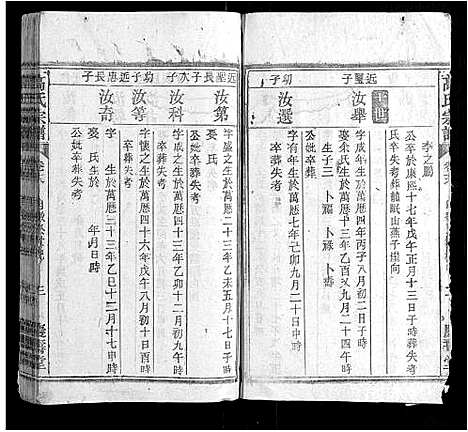 李之鵬
公卒於康熙十七年戊午十月十三日子時葬失考
氏卒失考葬龍眠山燕子崖向
近璽子
汝舉
字成年生於萬曆四年丙子八月初二日子時
娶余氏生於萬曆九年辛巳九月二十四時
生子三 卜福 卜祿 卜壽
公妣卒葬失考
幼子
汝選
字有年生於萬曆七年己卯九月二十日時
公妣卒葬失考
高氏宗譜
近璧長子
汝第
字盛之生於萬曆二十三年乙未五月十七日子時
娶 氏
公妣卒葬失考
次子
汝科
字 之生於萬曆四十三年乙卯十月初九午時
卒葬失考
幼子
汝等
字 之生於萬曆四十六年戊午八月初十日酉時
卒葬失考
近唐長子
汝奇
字 之生於萬曆三十三年乙巳十二月十七申時
娶 氏生於 年月日時
公妣卒葬失考
高氏宗譜